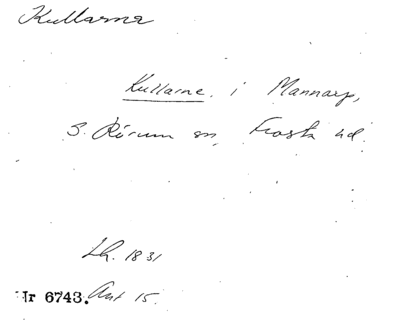 Kullarna
Kullarne. i Mannarp,
S. Rörum sn, Frosta hd.
Lh. 1831
Nr 6743. Art 15.